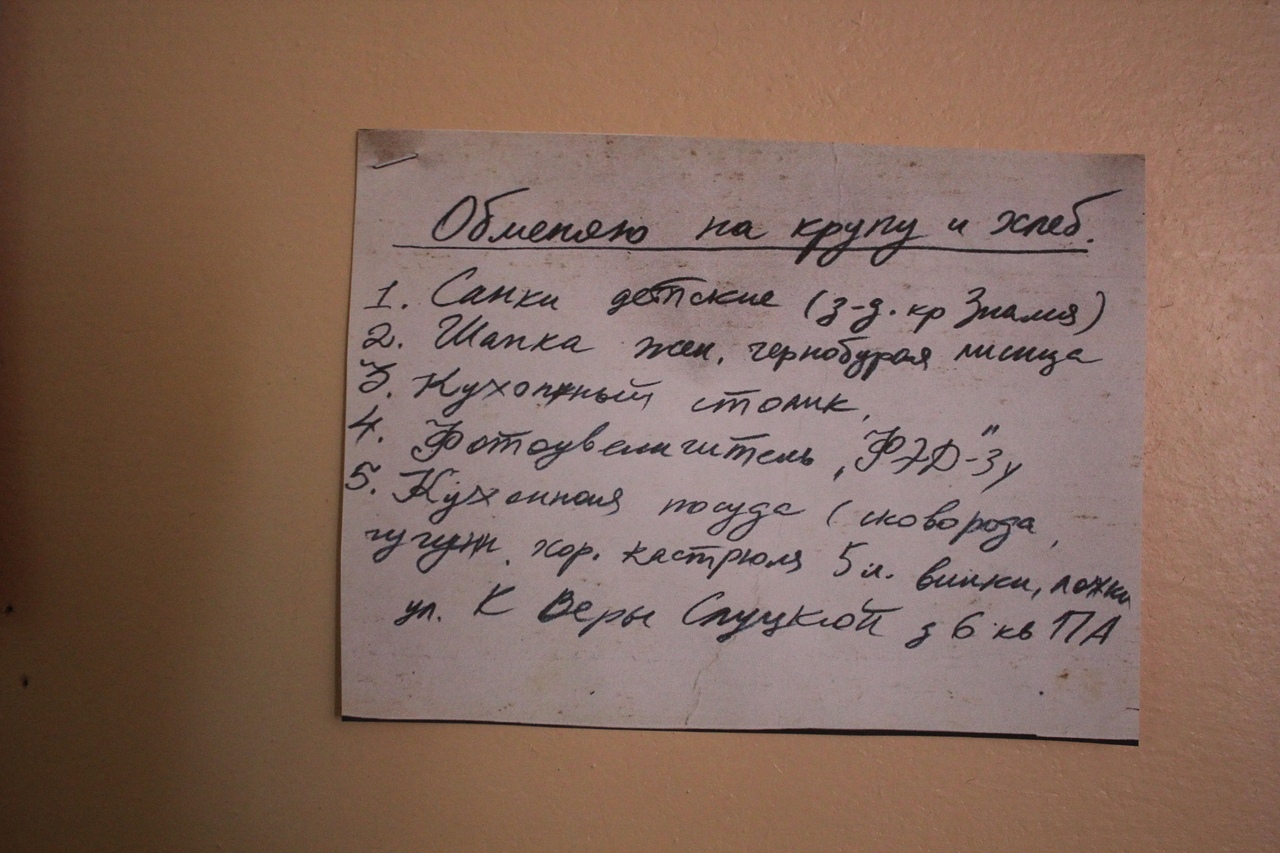 Обменяю на крупу и хлеб.
1. Санки детские (з-д. кр Знамя)
2. Шапка жен. чернобурая лисица
3. Кухонный столик,
4. Фотоувеличитель „ФЭД"-3у
5. Кухонная посуда (сковорода,
чугунн. хор. кастрюля 5 л. вилки, ложки
ул. К Веры Слуцкой д 6 кв ПА